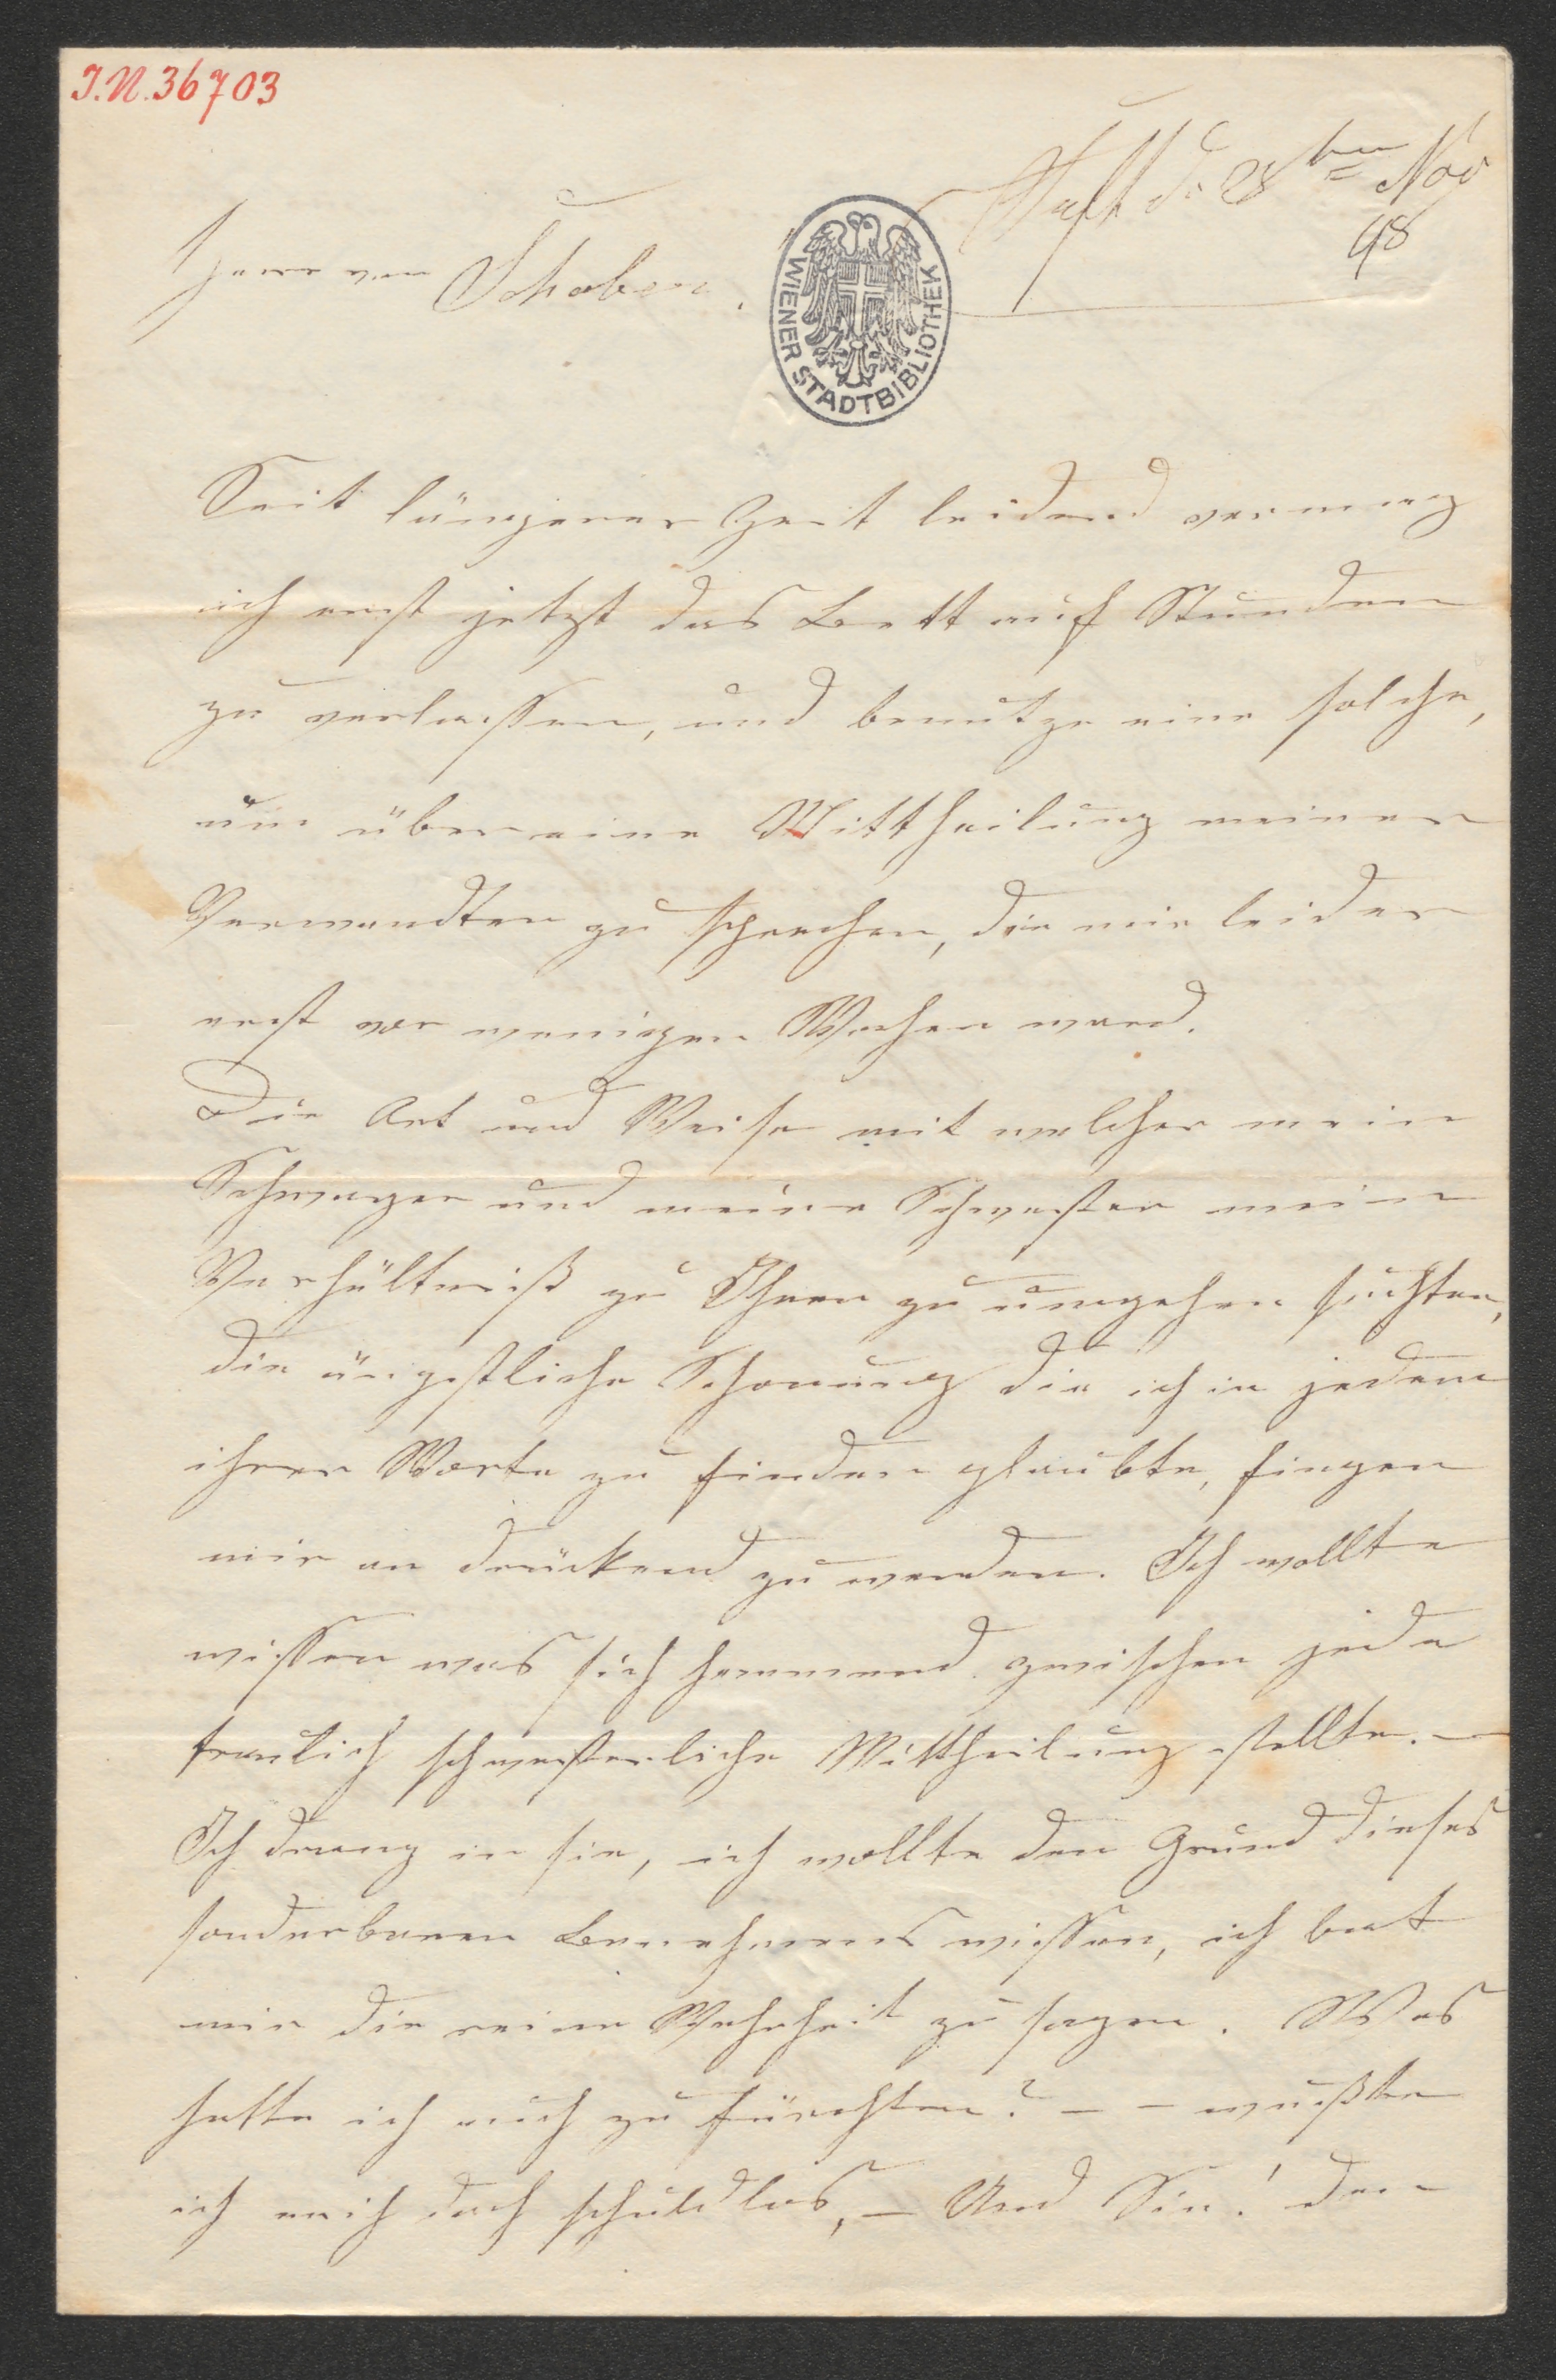 I.N. 36703
d. 28ten Nov
48
Herr von Schober.
WIENER STADTBIBLIOTHEK
Seit längerer Zeit leidend vermag
ich erst jetzt das Bett auf Stunden
zu verlassen, und benutze eine solche,
um über eine Mittheilung meiner
Verwandten zu sprechen, die mir leider
erst vor wenigen Wochen ward.
Die Art und Weise mit welcher mein
Schwager und meine Schwester mein
Verhältniß zu Ihnen zu umgehen suchten,
die ängstliche Schonung die ich in jedem
ihrer Worte zu finden glaubte, fingen
mir an drückend zu werden. Ich wollte
wissen was sich hemmend zwischen jede
traulich schwesterliche Mittheilung stellte. –
Ich drang in sie, ich wollte den Grund dieses
sonderbaren Benehmens wissen, ich bat
mir die reine Wahrheit zu sagen. Was
hatte ich auch zu fürchten? – – wußte
ich mich doch schuldlos, – Und Sie! den